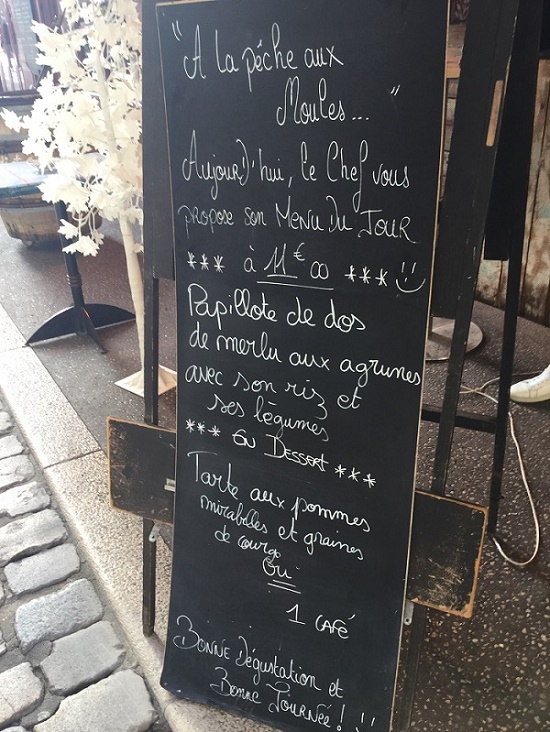 "A la pêche aux
Moules... "
Aujourd'hui, le Chef vous
propose son Menu Du Jour
*** à 11€00 ***
Papillote de dos
de merlu aux agrumes
avec son riz et
ses légumes
*** En Dessert ***
Tarte aux pommes
mirabelles et graines
de courge
Ou
1 CAFÉ
Bonne dégustation et
Bonne Journée !